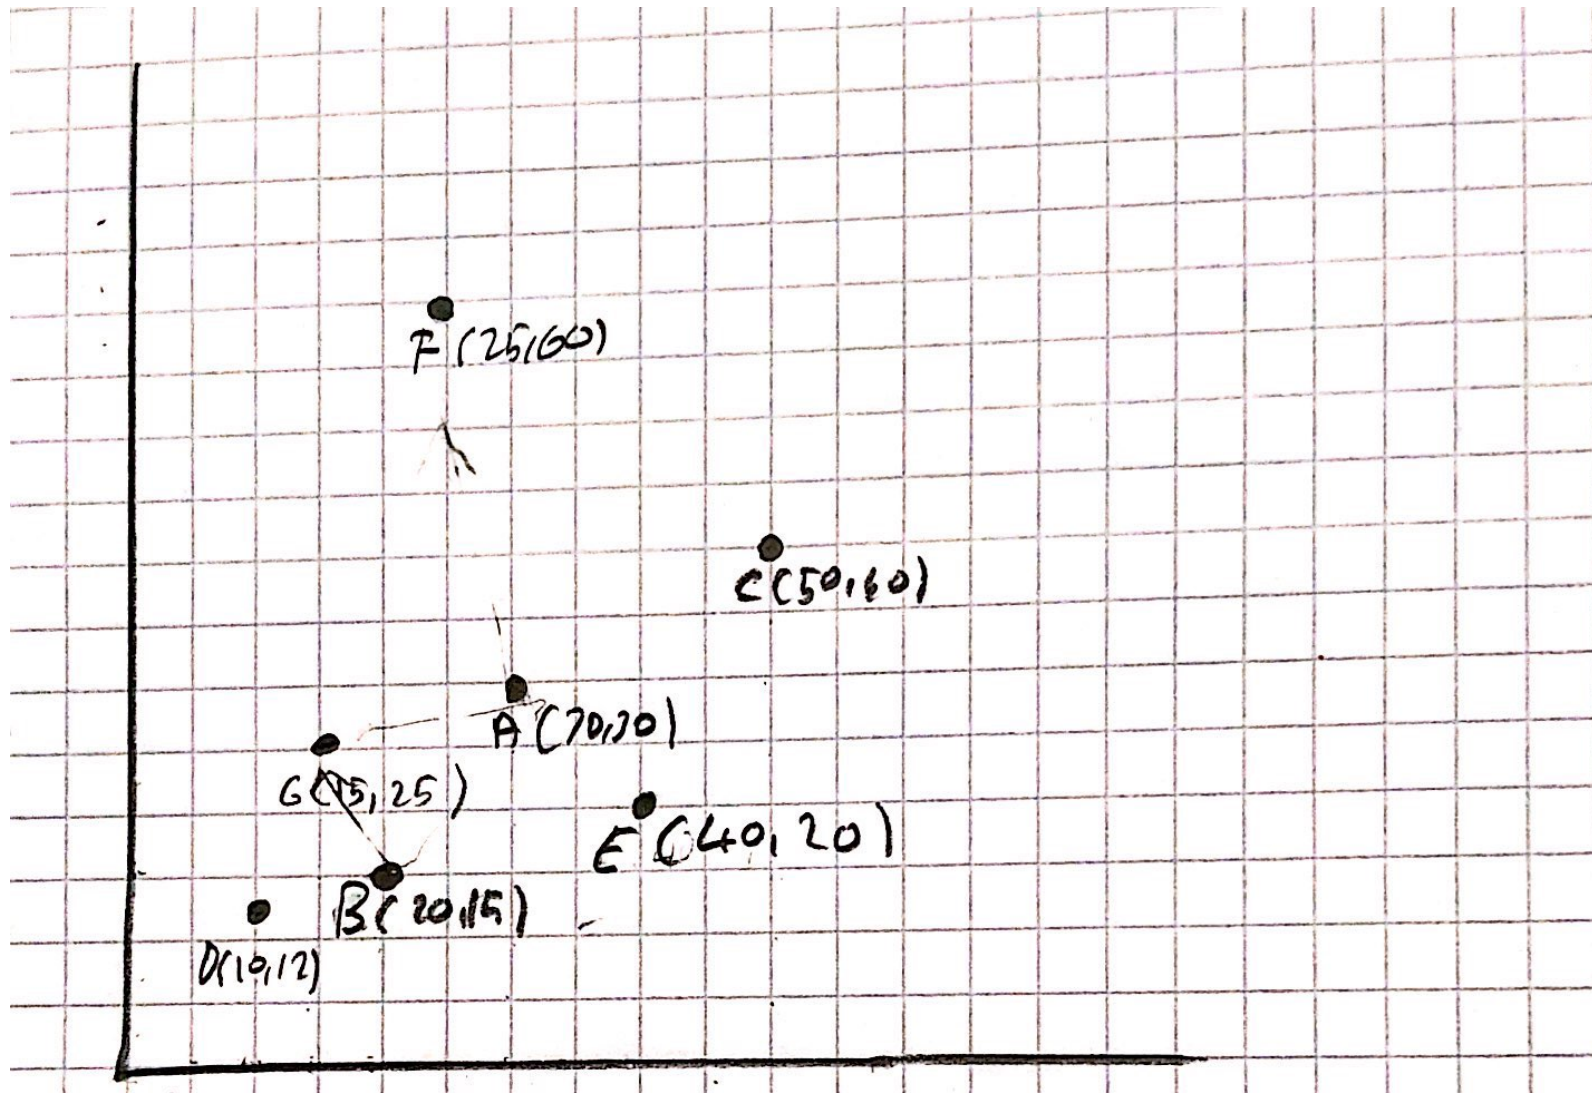 F (25,60)
C(50,40)
A (30,30)
G(15,25)
E (40,20)
B(20,15)
D(10,12)